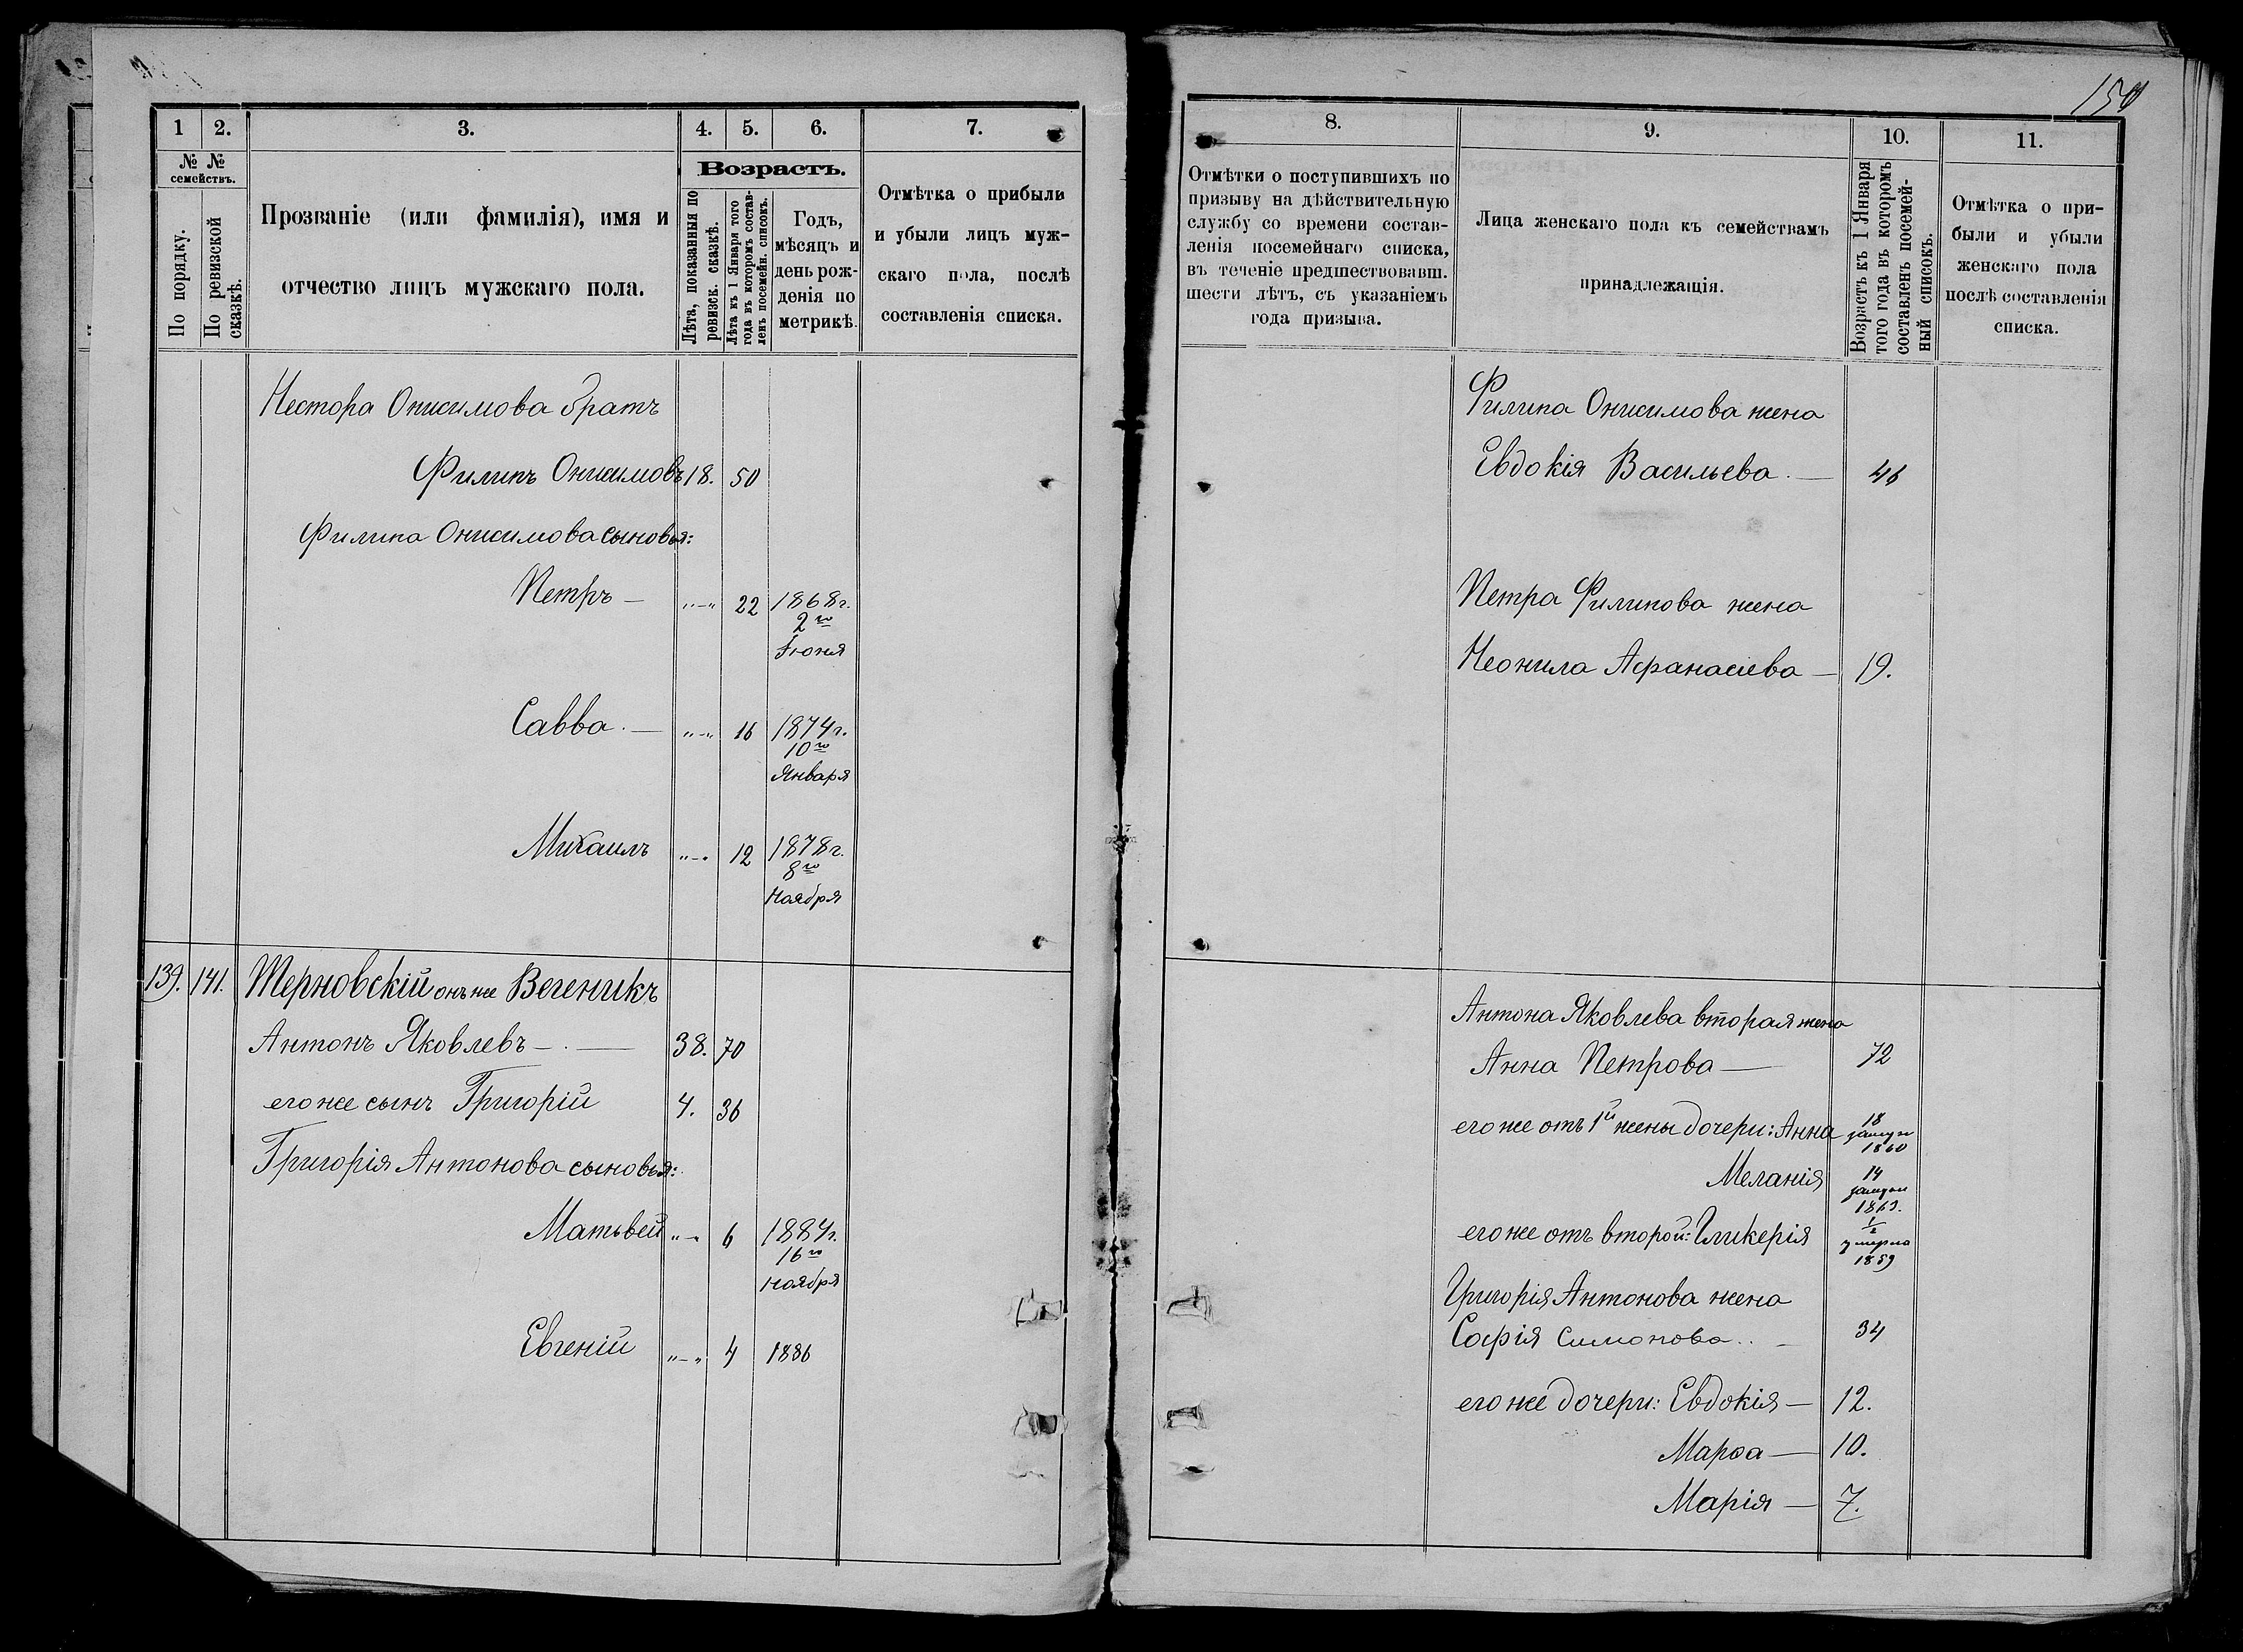 1
2.
3.
4.
5.
6.
7.
№ №
семействъ.
По порядку.
По ревизской
сказкѣ.
Прозваніе (или фамилія), имя и
отчество лицъ мужскаго пола.
Возрастъ.
Лѣта, показанныя по
ревизск. сказкѣ.
Лѣта къ 1 Января того
года въ которомъ состав-
ленъ посемейн. списокъ.
Годъ,
мѣсяцъ и
день рож-
денія по
метрикѣ.
Отмѣтка о прибыли
и убыли лицъ муж-
скаго пола, послѣ
составленія списка.
Нестора Онисимова братъ
Филипъ Онисимовъ 18. 50
Филипа Онисимова сыновья:
Петръ — „—„ 22 1868 г.
2го
Іюня
Савва. — „—„ 16 1874 г.
10го
Января
Михаилъ „—„ 12 1878 г.
8го
Ноября
139. 141. Терновскій онъ же Вегеникъ
Антонъ Яковлевъ — . — 38. 70
его же сынъ Григорій 4. 36
Григорія Антонова сыновья:
Матьвей „—„ 6 1884 г.
16го
Ноября
Евгеній „—„ 4 1886
150
8.
9.
10.
11.
Отмѣтки о поступившихъ по
призыву на дѣйствительную
службу со времени состав-
ленія посемейнаго списка,
въ теченіе предшествовавш.
шести лѣтъ, съ указаніемъ
года призыва.
Лица женскаго пола къ семействамъ
принадлежащія.
Возрастъ къ 1 Января
того года въ которомъ
составленъ посемей-
ный списокъ.
Отмѣтка о при-
были и убыли
женскаго пола
послѣ составленія
списка.
Филипа Онисимова жена
Евдокія Васильева. — 46
Петра Филипова жена
Неонила Афанасіева — 19.
Антона Яковлева вторая жена
Анна Петрова — 72
его же отъ 1й жены дочери: Анна 18
замуж
1860
Меланія 14
замуж
1863.
его же отъ второй: Гликерія
умерла
1859
Григорія Антонова жена
Софія Симонова. . — 34
его же дочери: Евдокія — 12.
Марѳа — 10.
Марія — 7.